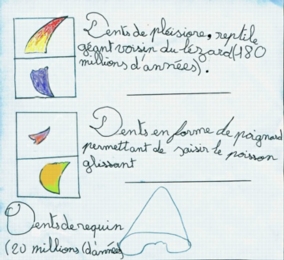 Dents de plésiore, reptile
géant voisin du lézard (180
millions d'années).
Dents en forme de poignard
permettant de saisir le poisson
glissant
Dents de requin
(20 millions d'années)